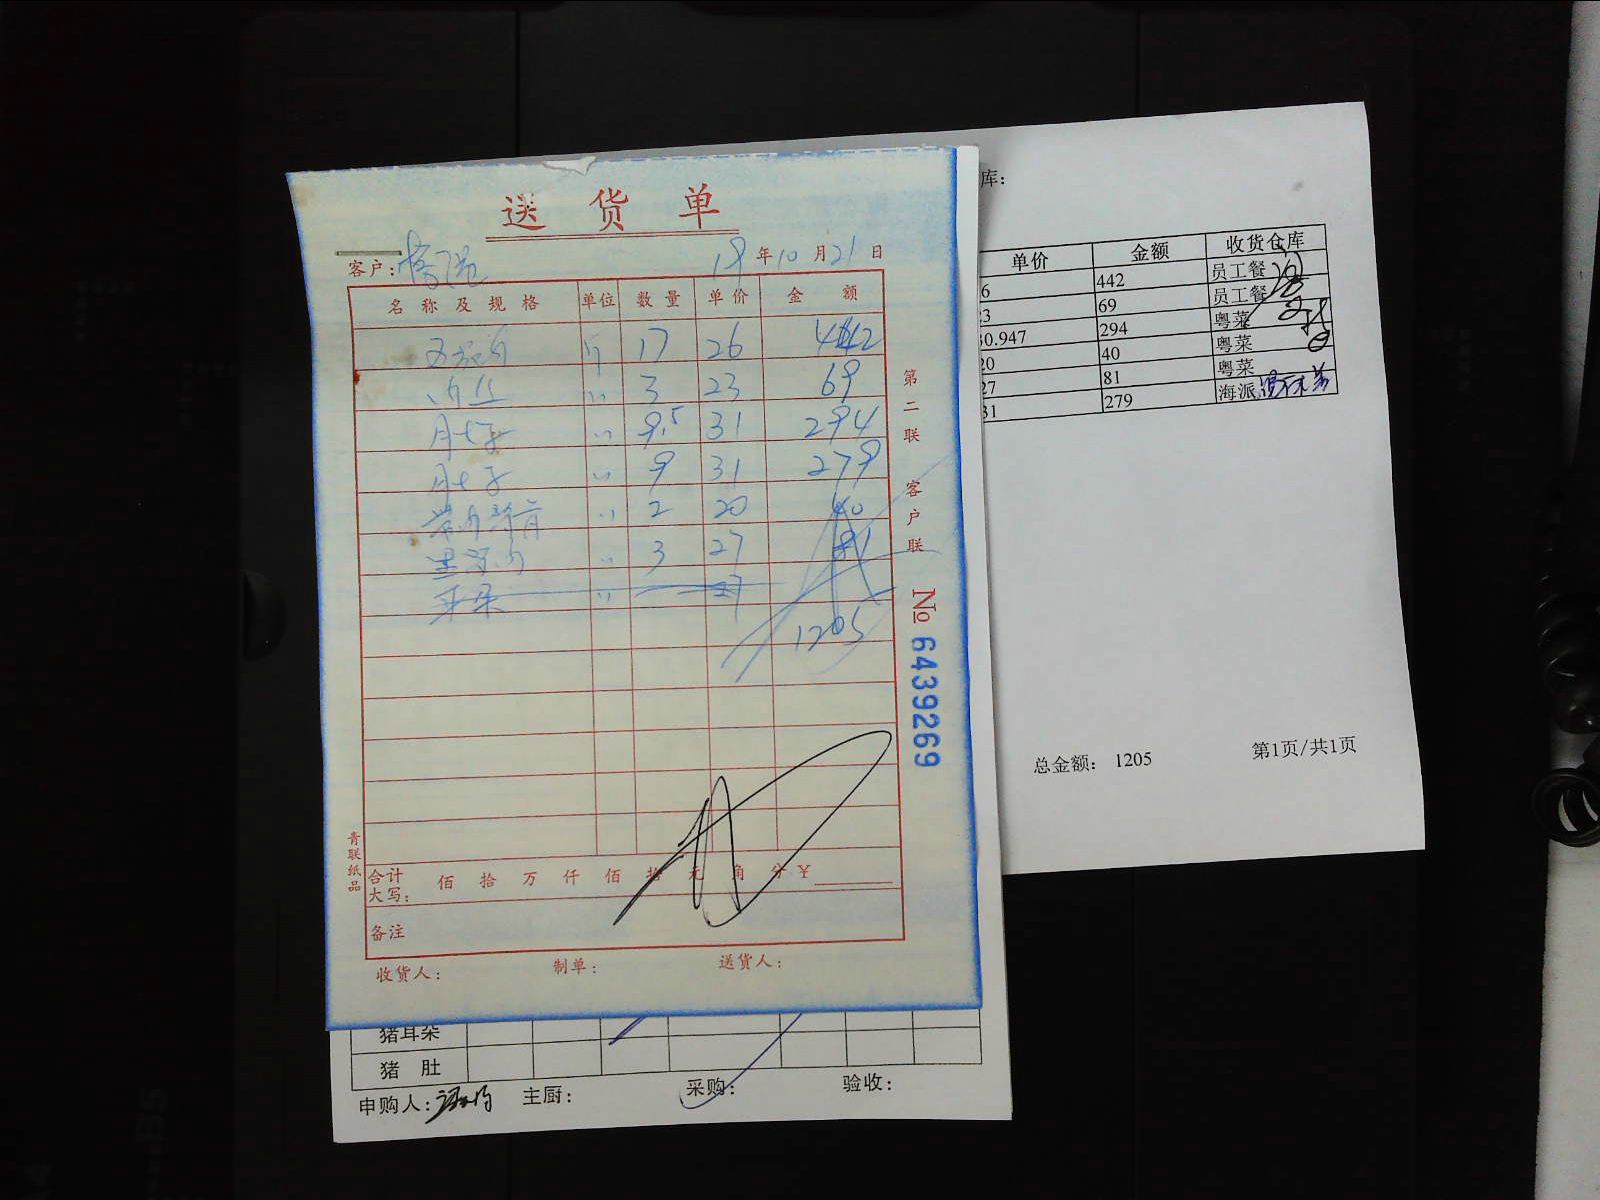 送货单
客户:
18年10月21日
名称及规格 单位 数量 单价 金额
五花肉 斤 17 26 442
肉丝 〃 3 23 69
肚子 〃 9.5 31 294
肚子 〃 9 31 279
〃 2 20 40
〃 3 27 81
〃 27
1205
第二联 客户联
№ 6439269
青联纸品
合计大写: 佰 拾 万 仟 佰 拾 元 角 分 ¥
备注
收货人: 制单: 送货人:
猪耳朵
猪 肚
申购人: 主厨: 采购: 验收:
库:
单价 金额 收货仓库
6 442 员工餐
23 69 员工餐
30.947 294 粤菜
20 40 粤菜
27 81 粤菜
31 279 海派
总金额: 1205 第1页/共1页